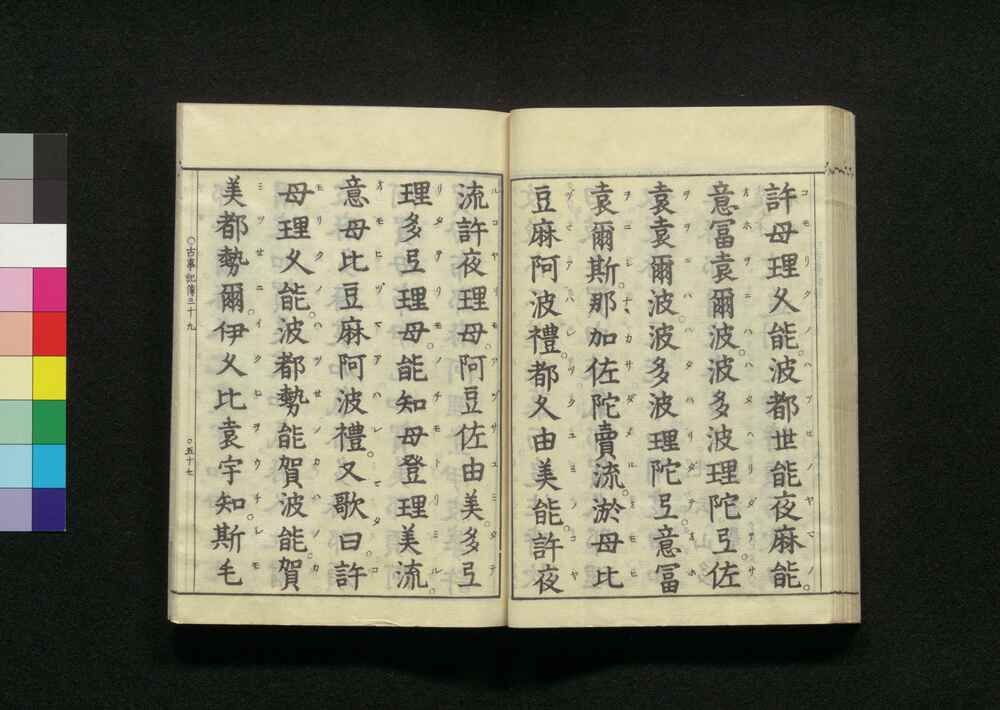 許母理久能。波都世能夜麻能。
意冨袁爾波。波多波理陀弖。佐
袁袁爾波。波多波理陀弖。意冨
袁爾斯。那加佐陀賣流。淤母比
豆麻阿波禮。都久由美能。許夜
流許夜理母。阿豆佐由美。多弖
理多弖理母。能知母登理美流。
意母比豆麻阿波禮。又歌曰。許
母理久能。波都勢能賀波能。賀
美都勢爾。伊久比袁宇知。斯毛
○古事記傳三十九
○五十七